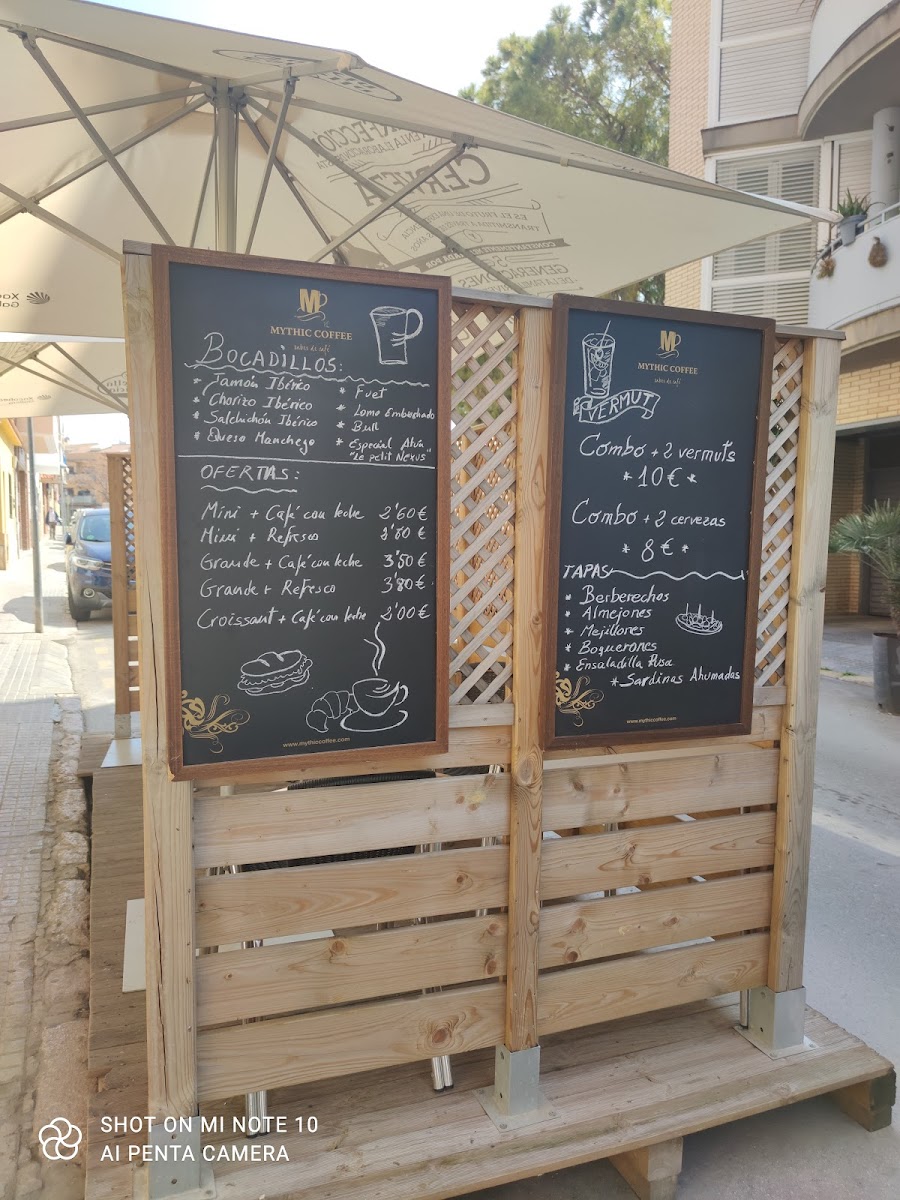 CERVEZA
GENERACIONES
MYTHIC COFFEE
sabor de café
BOCADILLOS:
* Jamón Ibérico
* Chorizo Ibérico
* Salchichón Ibérico
* Queso Manchego
* Fuet
* Lomo Embuchado
* Bull
* Especial Atún
"Le petit Nexus"
OFERTAS:
Mini + Café con leche 2'60€
Mini + Refresco
Grande + Café con leche 3'50€
Grande + Refresco 3'80€
Croissant + Café con leche 2'00€
www.mythiccoffee.com
MYTHIC COFFEE
sabor de café
VERMUT
Combo + 2 vermuts
* 10€ *
Combo + 2 cervezas
* 8€ *
TAPAS
* Berberechos
* Almejones
* Mejillones
* Boquerones
* Ensaladilla Rusa
* Sardinas Ahumadas
www.mythiccoffee.com
SHOT ON MI NOTE 10
AI PENTA CAMERA